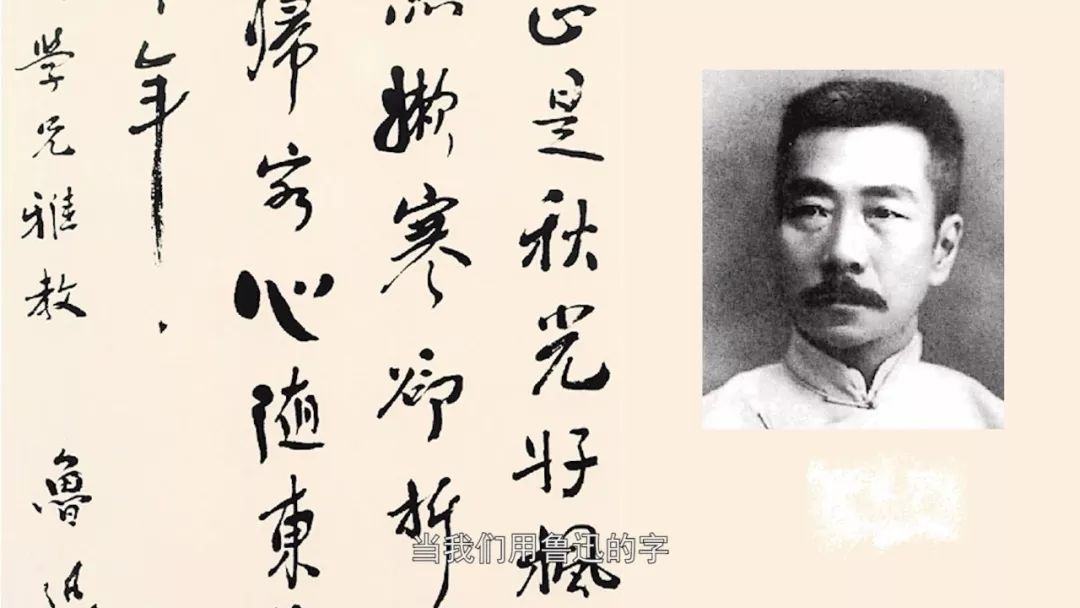 正是秋光好楓
嫩寒卻折
歸客心隨東
年
學兄雅教 魯迅
当我们用鲁迅的字